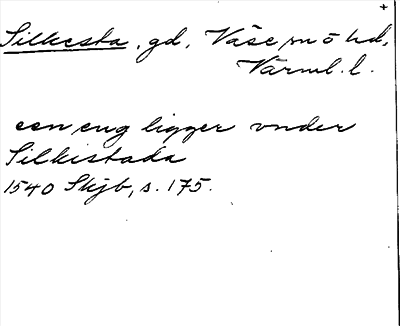 +
Silkesta, gd, Väse sn o hd,
Värml. l.
een eng ligger vnder
Silkistada
1540 Skjb, s. 175.